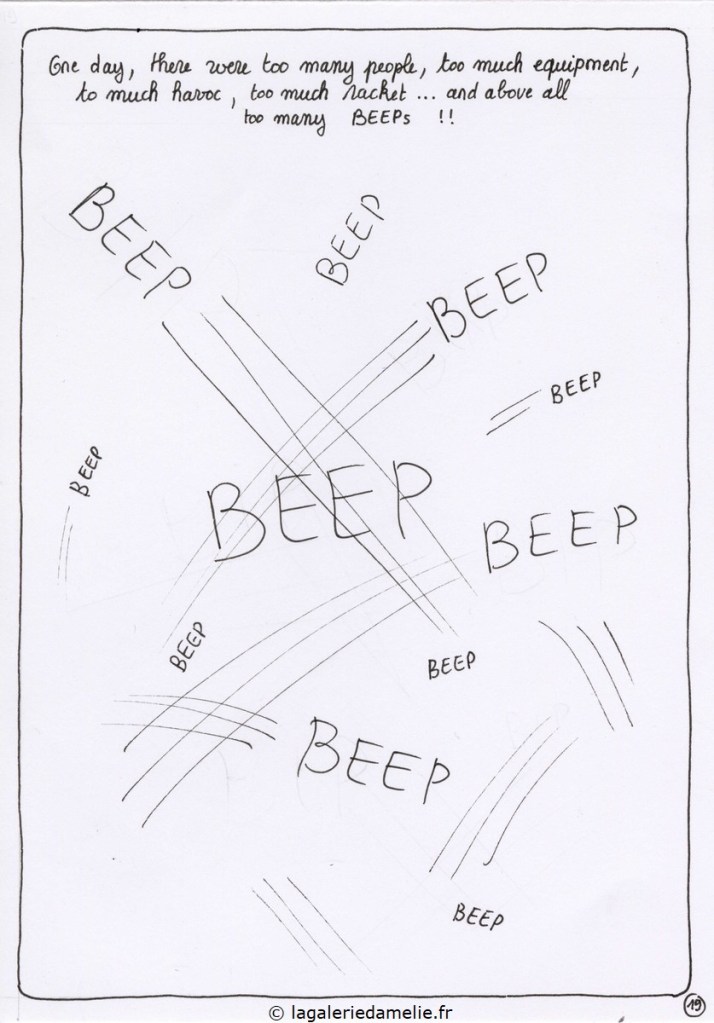 One day, there were too many people, too much equipment,
to much havoc, too much racket ... and above all
too many BEEPs !!
BEEP
BEEP
BEEP
BEEP
BEEP
BEEP
BEEP
BEEP
BEEP
BEEP
BEEP
19
© lagaleriedamelie.fr